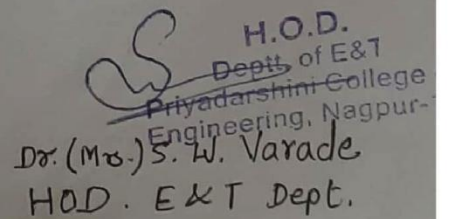 H.O.D.
Deptt, of E&T
Priyadarshini College
Engineering, Nagpur-
Dr. (Mrs.) S. W. Varade
HOD. E & T Dept.